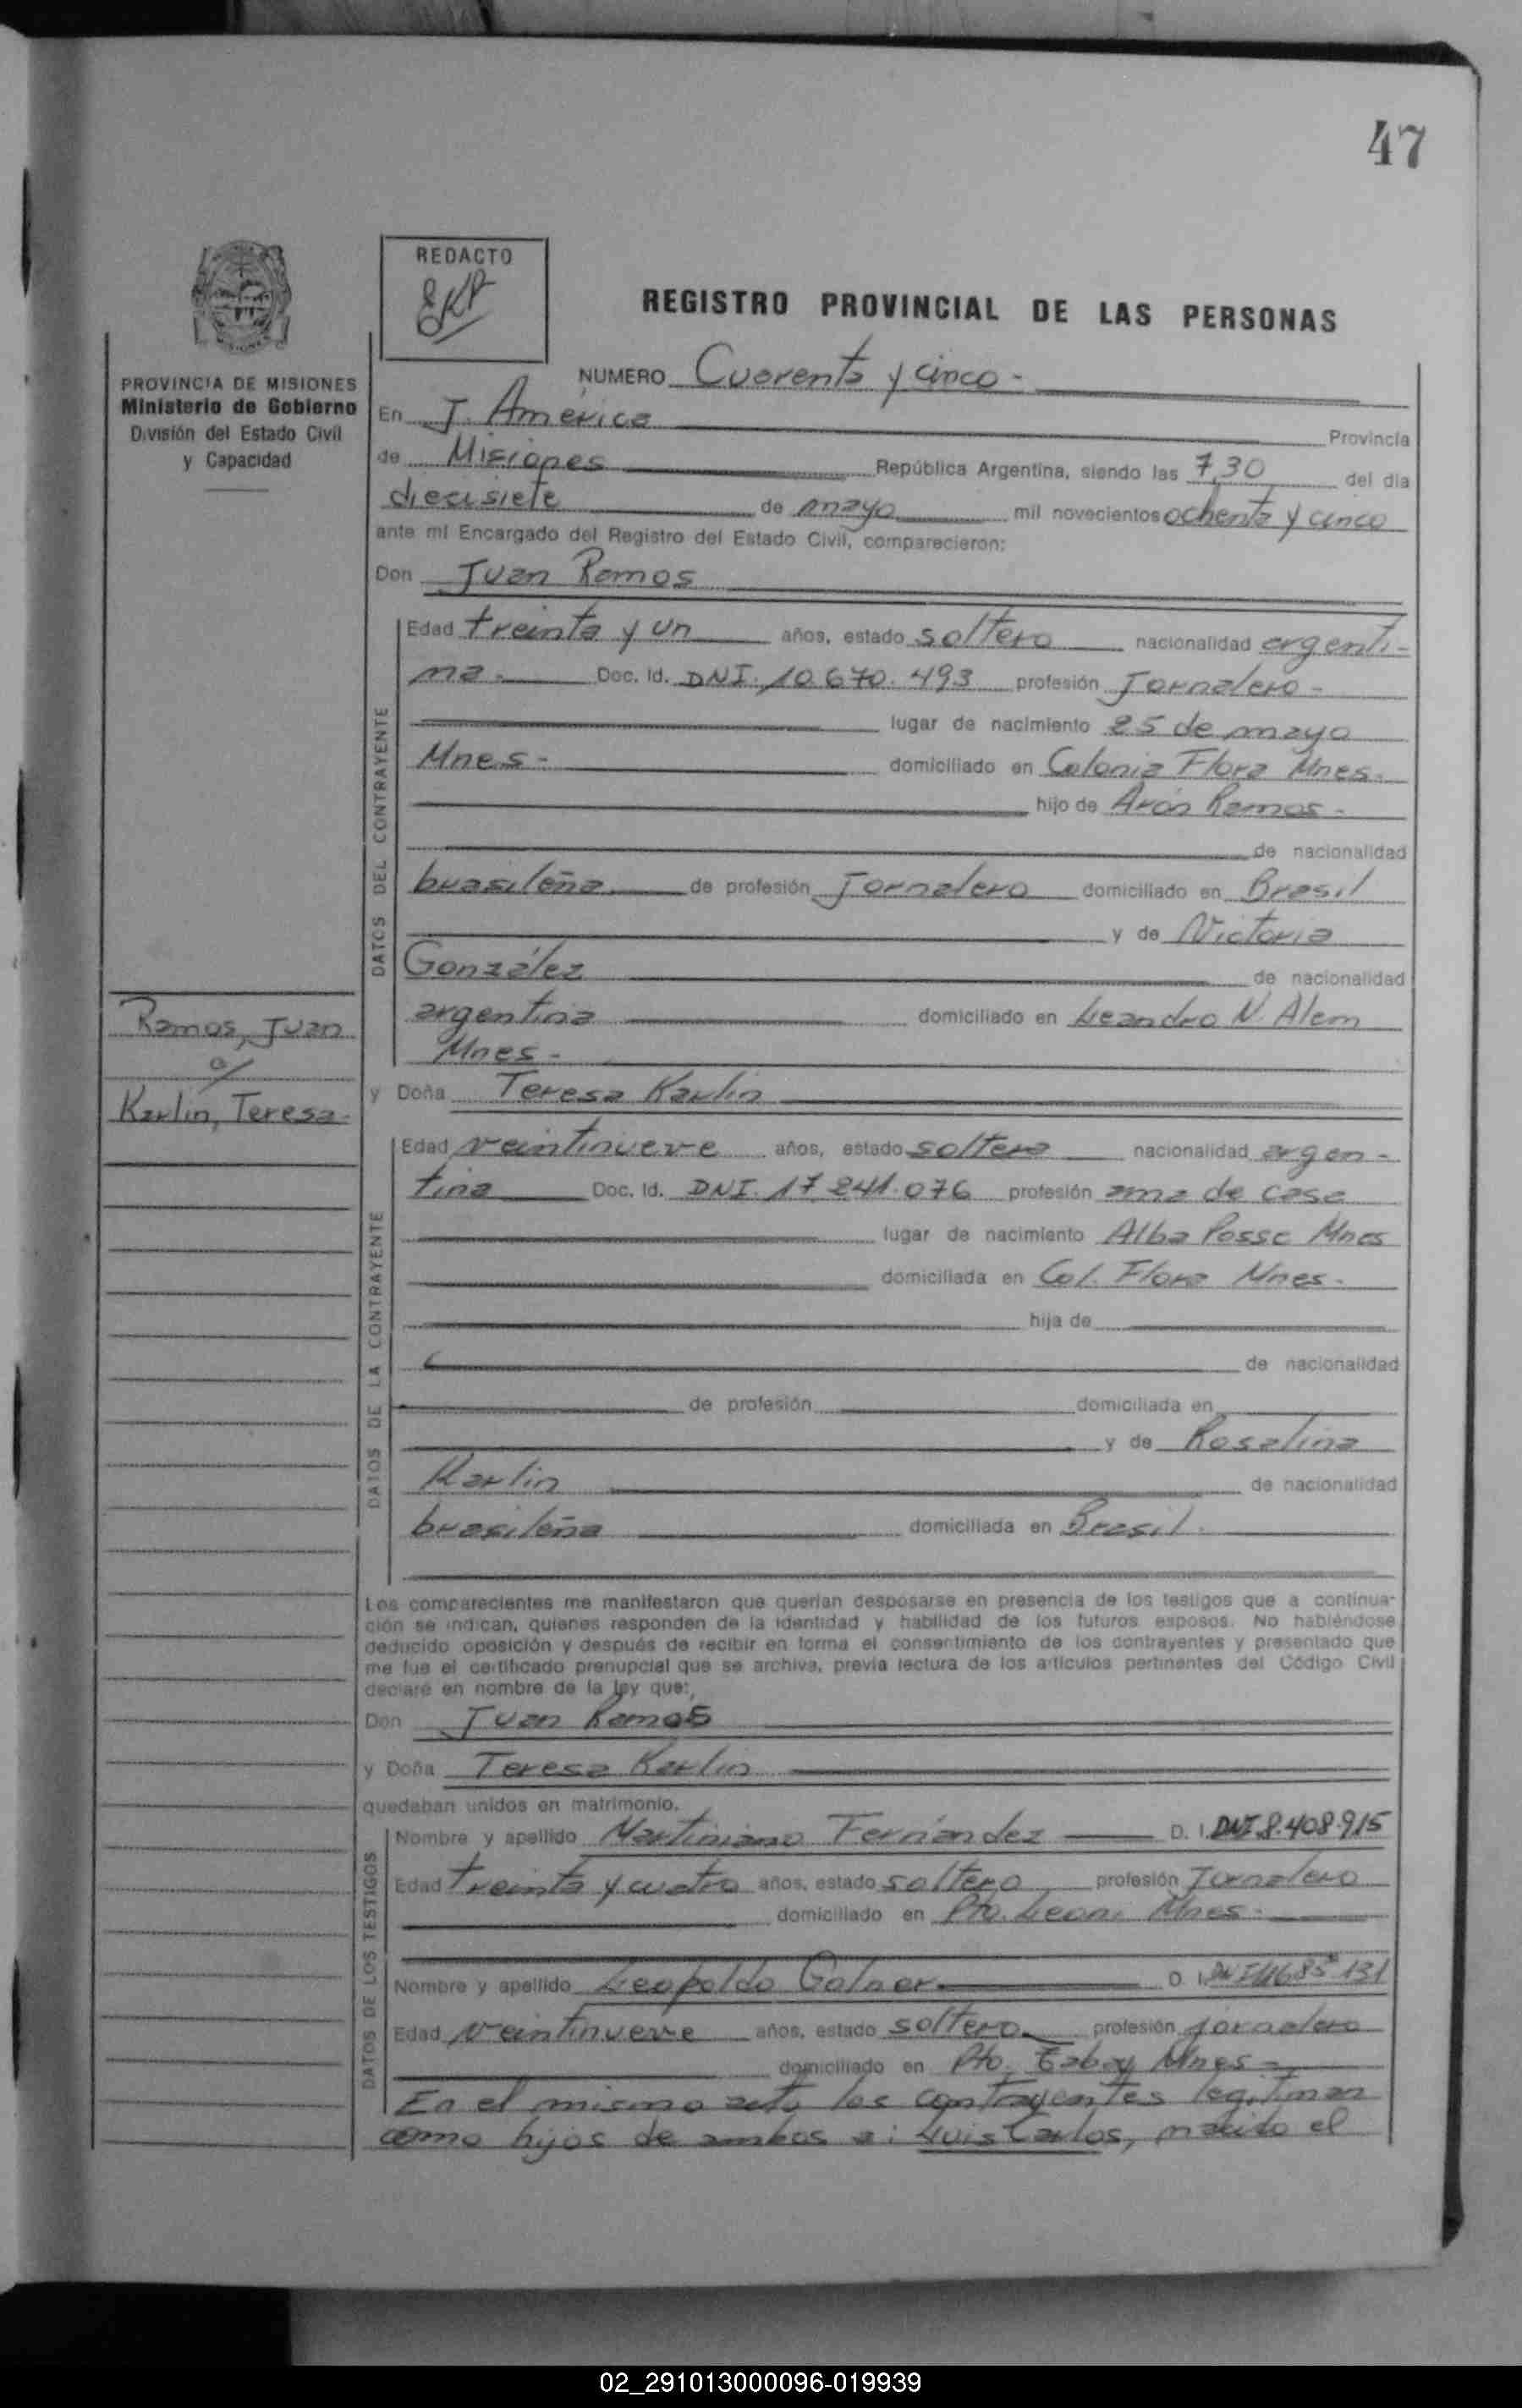 47
REDACTO
REGISTRO PROVINCIAL DE LAS PERSONAS
PROVINCIA DE MISIONES
Ministerio de Gobierno
División del Estado Civil
y Capacidad
NUMERO Cuarenta y cinco -
En J. América Provincia
de Misiones República Argentina, siendo las 7,30 del día
diecisiete de mayo mil novecientos ochenta y cinco
ante mi Encargado del Registro del Estado Civil, comparecieron:
Don Juan Ramos
DATOS DEL CONTRAYENTE
Edad treinta y un años, estado soltero nacionalidad argenti-
na - Doc. Id. DNI. 10.670.493 profesión Jornalero -
lugar de nacimiento 25 de mayo
Mnes - domiciliado en Colonia Flora Mnes.
hijo de Arón Ramos -
de nacionalidad
brasileña de profesión Jornalero domiciliado en Brasil
y de Victoria
González de nacionalidad
argentina domiciliado en Leandro N. Alem
Mnes -
Ramos, Juan
c/
Karlin, Teresa -
y Doña Teresa Karlin
DATOS DE LA CONTRAYENTE
Edad veintinueve años, estado soltera nacionalidad argen -
tina Doc. Id. DNI. 17.241.076 profesión ama de casa
lugar de nacimiento Alba Posse Mnes
domiciliada en Col. Flora Mnes.
hija de
de nacionalidad
de profesión domiciliada en
y de Rosalina
Karlin de nacionalidad
brasileña domiciliada en Brasil.
Los comparecientes me manifestaron que querían desposarse en presencia de los testigos que a continua-
ción se indican, quienes responden de la identidad y habilidad de los futuros esposos. No habiéndose
deducido oposición y después de recibir en forma el consentimiento de los contrayentes y presentado que
me fue el certificado prenupcial que se archiva, previa lectura de los artículos pertinentes del Código Civil
declaré en nombre de la ley que:
Don Juan Ramos
y Doña Teresa Karlin
quedaban unidos en matrimonio.
DATOS DE LOS TESTIGOS
Nombre y apellido Martiniano Fernández D. I. DNI 8.408.915
Edad treinta y cuatro años, estado soltero profesión Jornalero
domiciliado en Pto. Leoni Mnes -
Nombre y apellido Leopoldo Golner D. I.
Edad veintinueve años, estado soltero profesión jornalero
domiciliado en Pto. Mnes -
En el mismo acto los contrayentes legitiman
como hijos de ambos a: Luis Carlos, nacido el
02_291013000096-019939